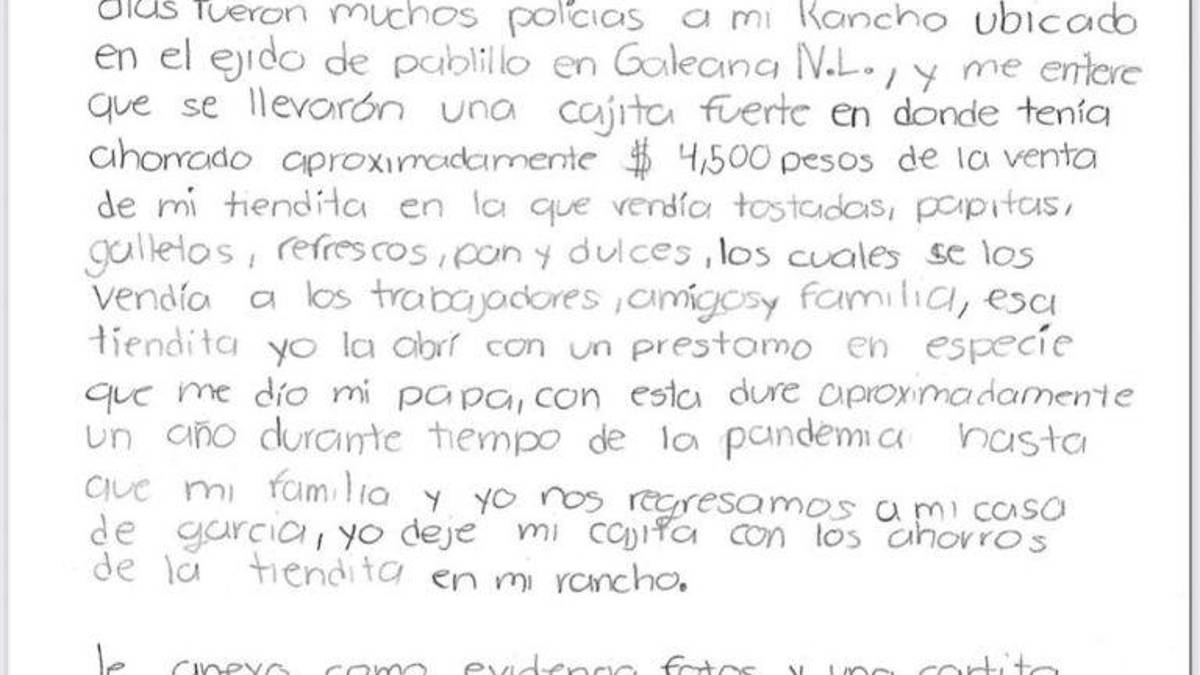 dias fueron muchos policias a mi Rancho ubicado
en el ejido de pablillo en Galeana N.L., y me entere
que se llevarón una cajita fuerte en donde tenía
ahorrado aproximadamente $ 4,500 pesos de la venta
de mi tiendita en la que vendía tostadas, papitas,
galletas, refrescos, pan y dulces, los cuales se los
vendía a los trabajadores, amigos y familia, esa
tiendita yo la abrí con un prestamo en especíe
que me dío mi papa, con esta dure aproximadamente
un año durante tiempo de la pandemia hasta
que mi familia y yo nos regresamos a mi casa
de garcia, yo deje mi cajita con los ahorros
de la tiendita en mi rancho.
le anexo como evidencia fotos y una cartita